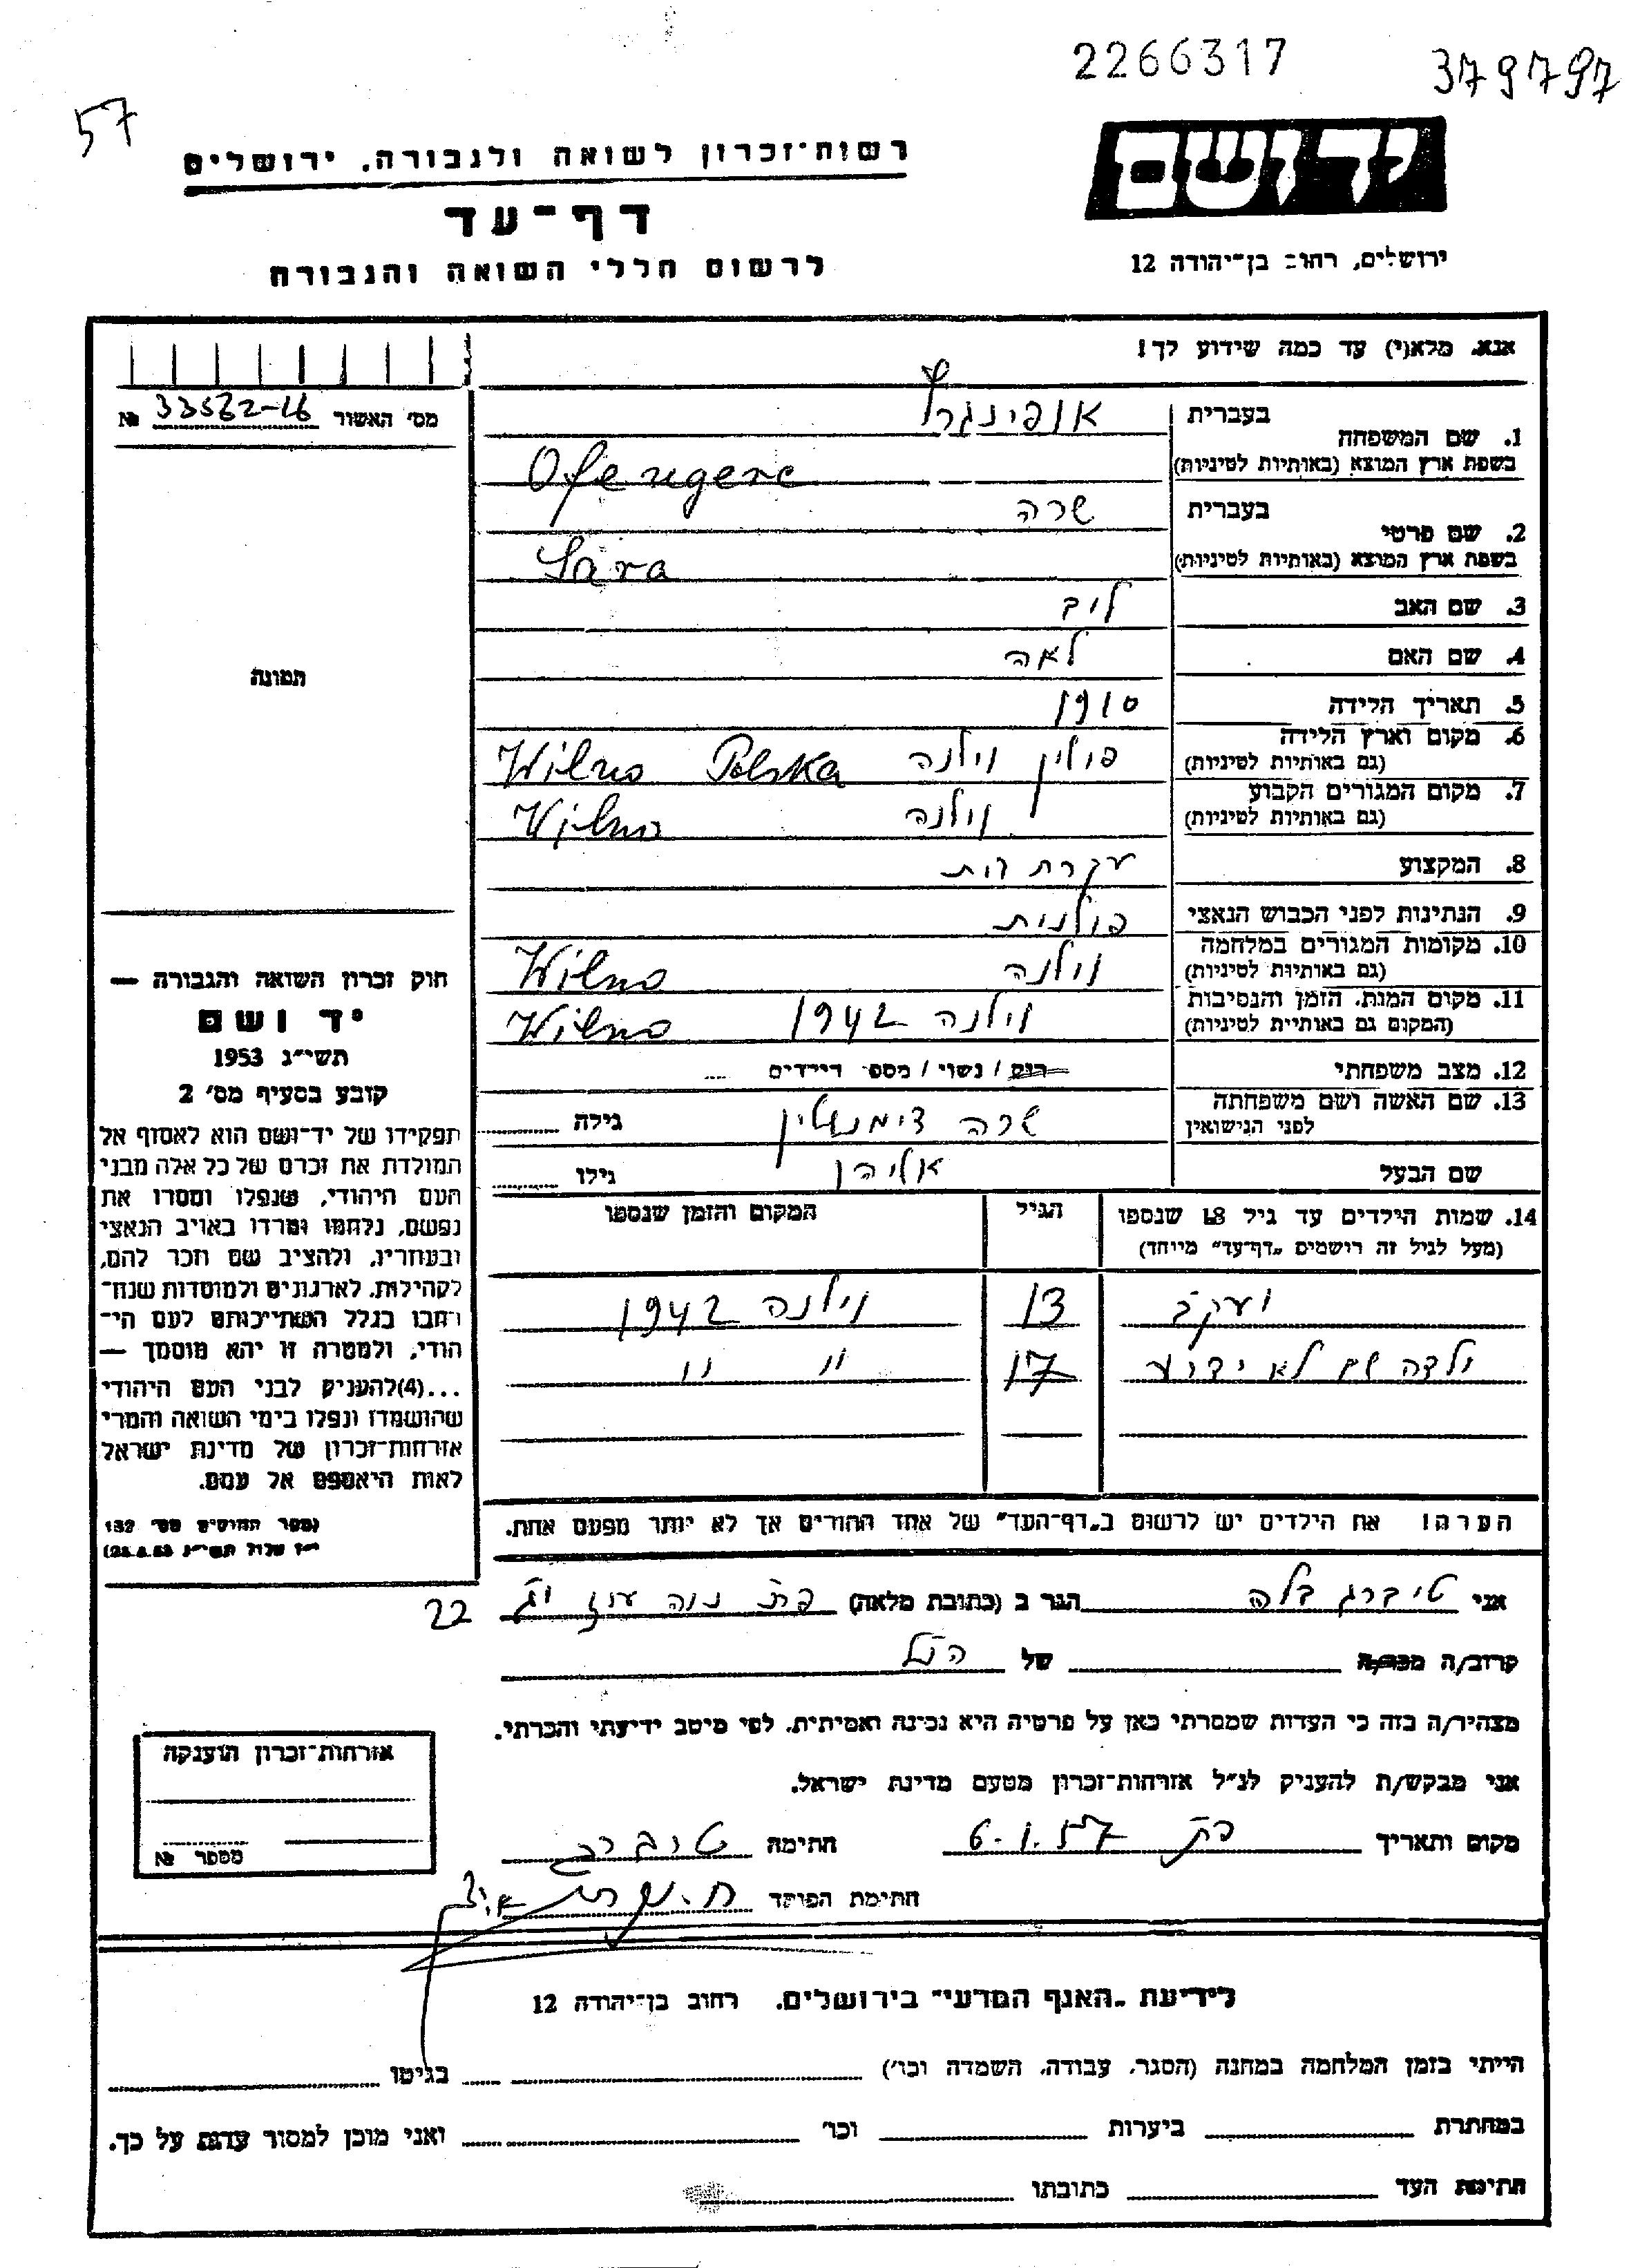 2266317
379797
57
יד ושם
רשות־זכרון לשואה ולגבורה, ירושלים
דף־עד
לרשום חללי השואה והגבורה
ירושלים, רחוב בן־יהודה 12
אנא, מלא(י) עד כמה שידוע לך!
מס' האשור №
תמונה
1. שם המשפחה
בעברית אופינגרץ
בשפת ארץ המוצא (באותיות לטיניות) Ofengerc
2. שם פרטי
בעברית שרה
בשפת ארץ המוצא (באותיות לטיניות) Sara
3. שם האב ליב
4. שם האם לאה
5. תאריך הלידה 1910
6. מקום וארץ הלידה פולין וילנה Wilno Polska
(גם באותיות לטיניות)
7. מקום המגורים הקבוע וילנה Wilno
(גם באותיות לטיניות)
8. המקצוע עקרת בית
9. הנתינות לפני הכבוש הנאצי פולנית
10. מקומות המגורים במלחמה וילנה Wilno
(גם באותיות לטיניות)
11. מקום המות, הזמן והנסיבות וילנה 1942 Wilno
(המקום גם באותיות לטיניות)
12. מצב משפחתי רווק / נשוי / מספר הילדים
13. שם האשה ושם משפחתה שרה דימנטין גילה
לפני הנישואין
שם הבעל אליהו גילו
14. שמות הילדים עד גיל 18 שנספו הגיל המקום והזמן שנספו
(מעל לגיל זה רושמים „דף־עד" מיוחד)
יעקב 13 וילנה 1942
ילדה שם לא ידוע 17 " "
הערה! את הילדים יש לרשום ב„דף־העד" של אחד ההורים אך לא יותר מפעם אחת.
חוק זכרון השואה והגבורה —
יד ושם
תשי"ג 1953
קובע בסעיף מס' 2
תפקידו של יד־ושם הוא לאסוף אל
המולדת את זכרם של כל אלה מבני
העם היהודי, שנפלו ומסרו את
נפשם, נלחמו ומרדו באויב הנאצי
ובעוזריו, ולהציב שם וזכר להם,
לקהילות, לארגונים ולמוסדות שנח־
רבו בגלל השתייכותם לעם הי־
הודי, ולמטרה זו יהא מוסמך —
...(4)להעניק לבני העם היהודי
שהושמדו ונפלו בימי השואה והמרי
אזרחות־זכרון של מדינת ישראל
לאות היאספם אל עמם.
(ספר החוקים מס' 132
י"ז אלול תשי"ג 28.8.53)
אני טיברג בלה הגר ב (כתובת מלאה) פת נוה עוז 22
קרוב/ה מכר/ה של הנ"ל
מצהיר/ה בזה כי העדות שמסרתי כאן על פרטיה היא נכונה ואמיתית, לפי מיטב ידיעתי והכרתי.
אני מבקש/ת להעניק לנ"ל אזרחות־זכרון מטעם מדינת ישראל.
מקום ותאריך פת 6.1.57 חתימה טיברג
חתימת הפוקד
אזרחות־זכרון הוענקה
מספר №
לידיעת „האגף המדעי" בירושלים, רחוב בן־יהודה 12
הייתי בזמן המלחמה במחנה (הסגר, עבודה, השמדה וכו') בגיטו
במחתרת ביערות וכו' ואני מוכן למסור עדות על כך.
חתימת העד כתובתו